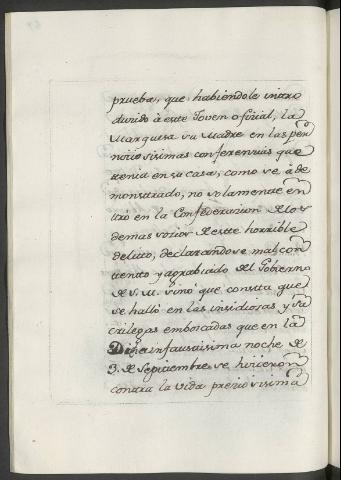 prueba, que habiendole intro
ducido à este Joven oficial, la
Marquesa su Madre en las per
niciosisimas conferencias que
tenia en su casa, como se à de
monstrado, no solamente en
tró en la Confederacion de los
demas socios de este horrible
delito, declarandose mal con
tento y agraviado del Gobierno
de S. M. sino que consta que
se halló en las insidiosas y sa
crilegas emboscadas que en la
Dicha infausissima noche de
3. de Septiembre se hicieron
contra la vida preciosisima